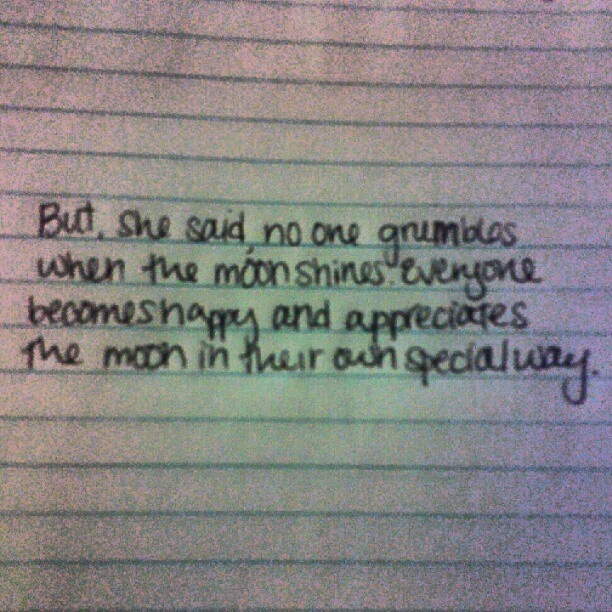 But, she said, no one grumbles
when the moon shines. everyone
becomes happy and appreciates
the moon in their own special way.